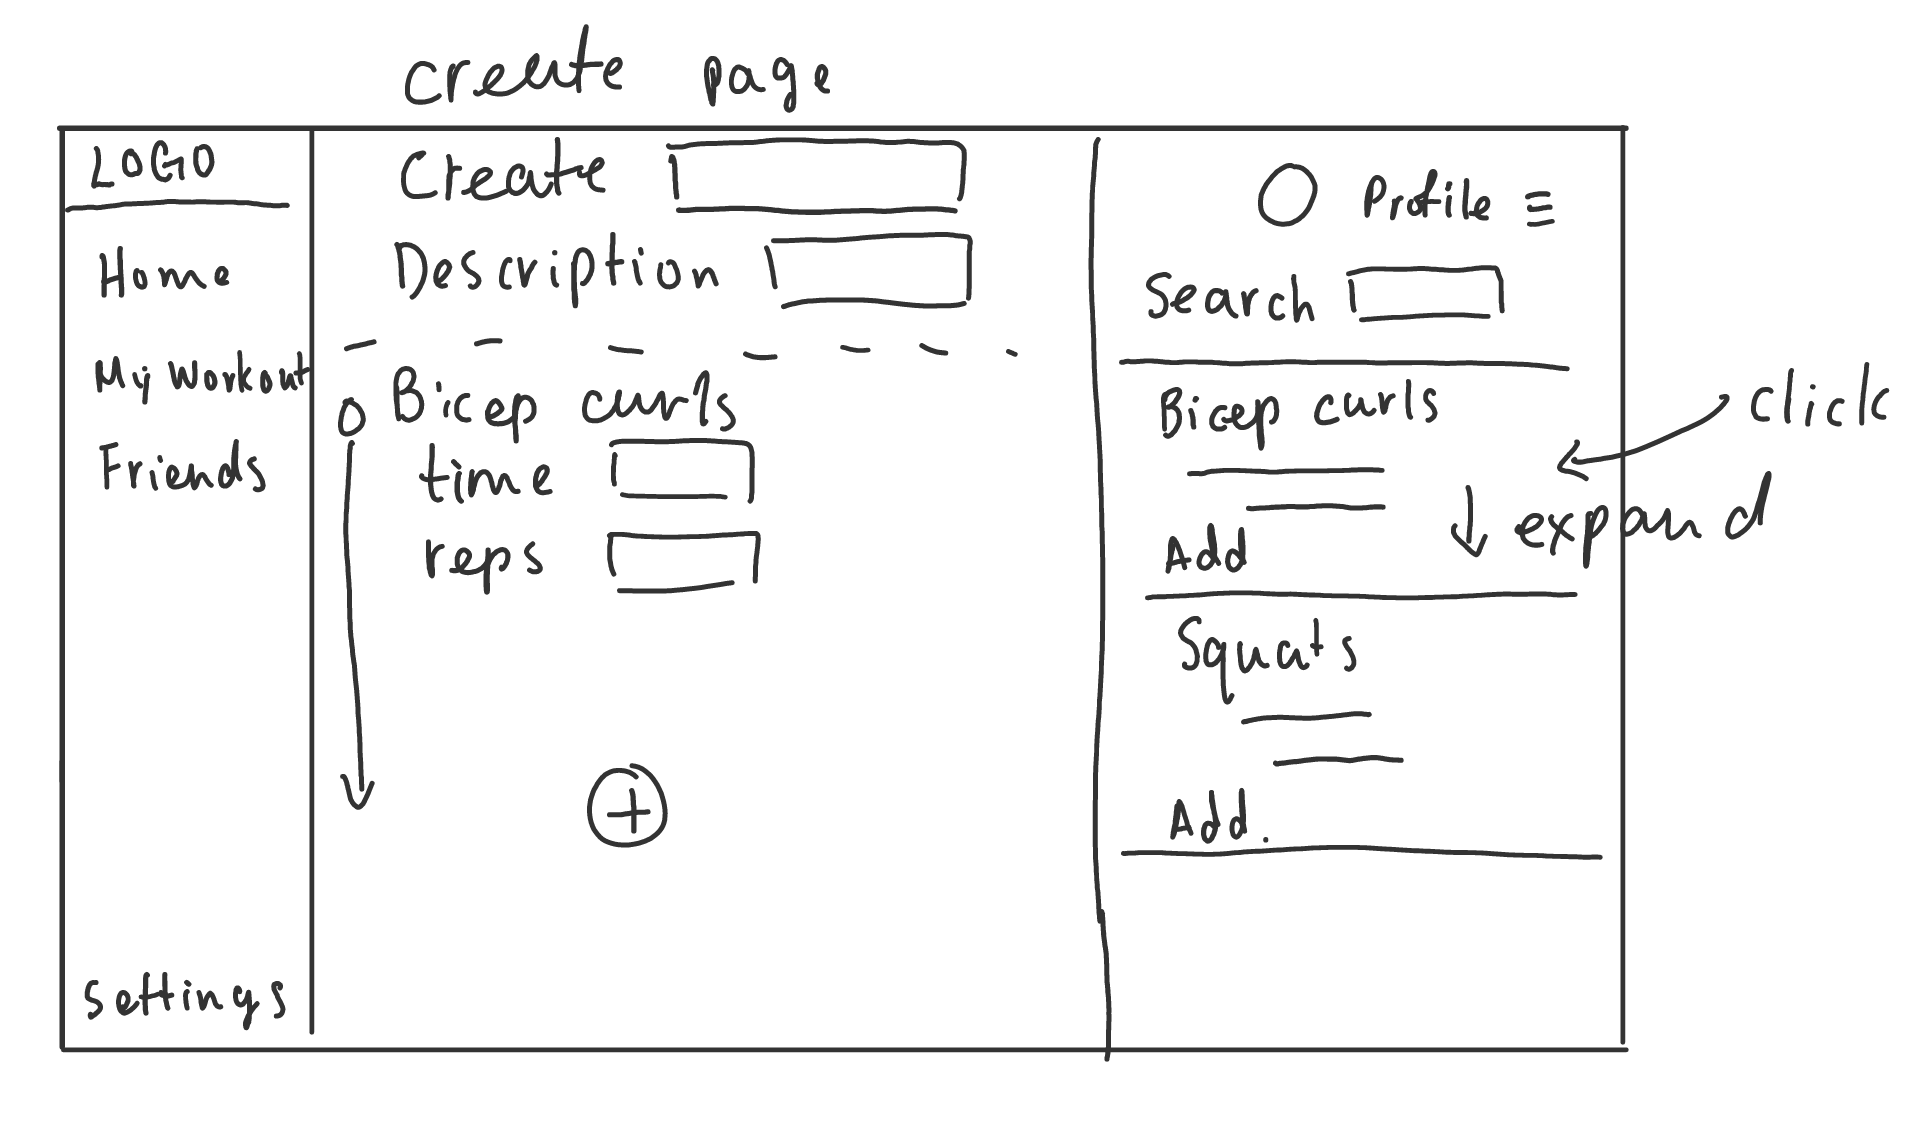 create page
LOGO
Home
My Workout
Friends
settings
Create
Description
Bicep curls
time
reps
+
Profile
Search
Bicep curls
Add
Squats
Add.
click
expand